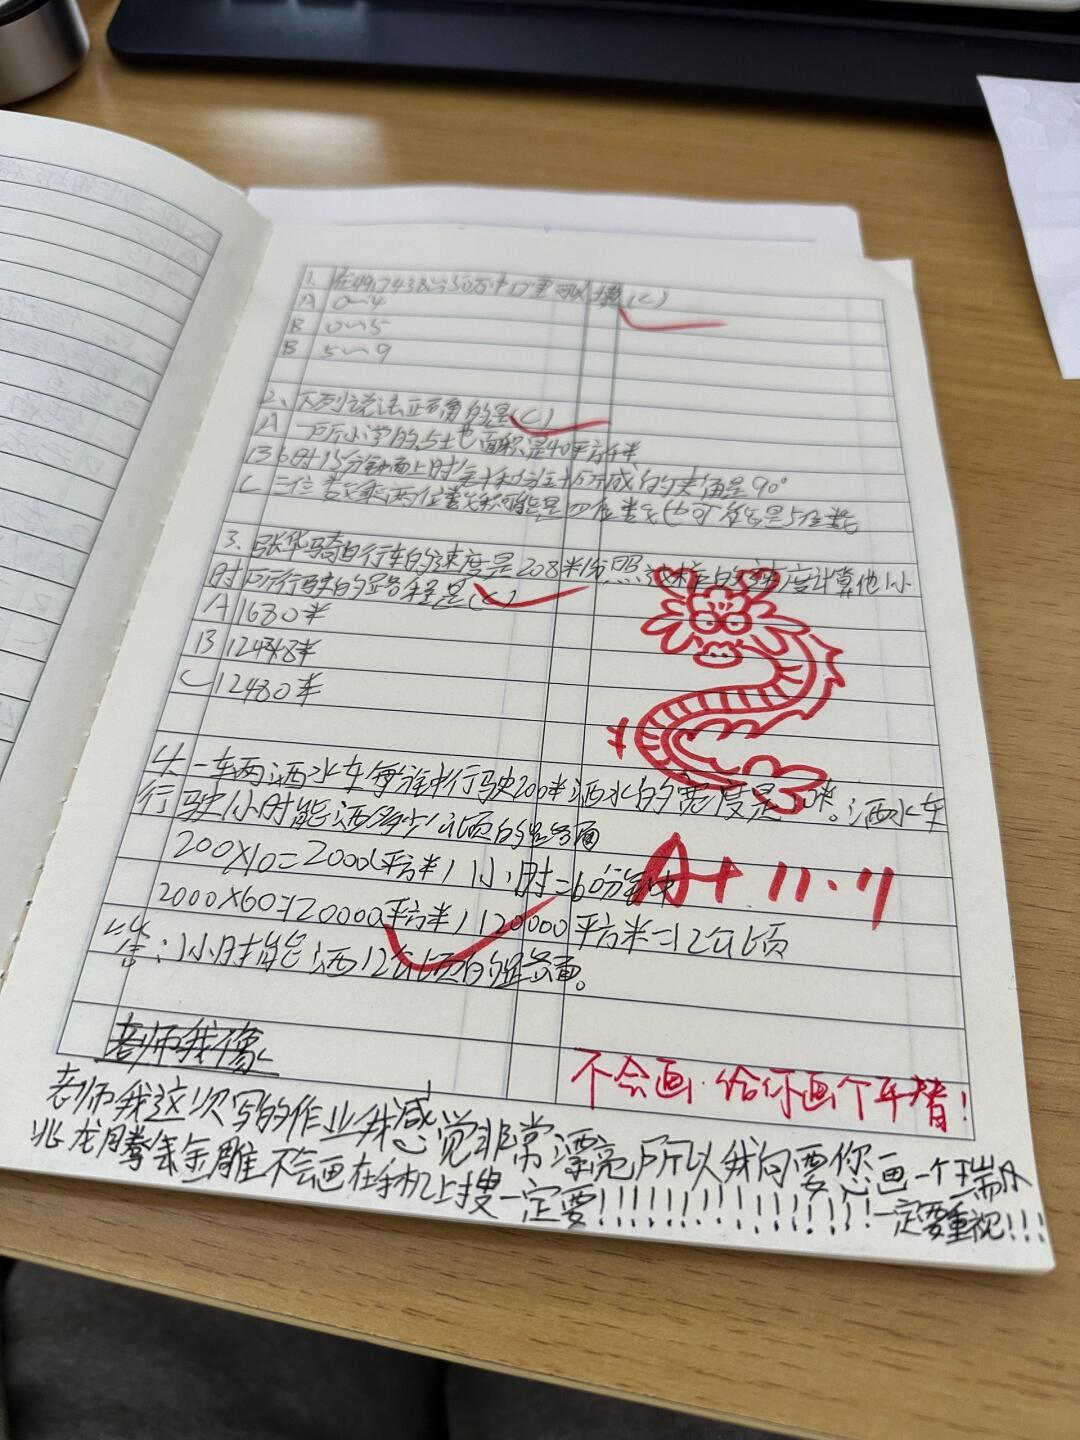 1. 在49□7438≈50万中□里可以填(C)
A 0~4
B 0~5
B 5~9
2、下列说法正确的是(C)
A 一所小学的占地面积是40平方千米
B 6时15分钟面上时针和分针所成的夹角是90°
C 三位数乘两位数积可能是四位数也可能是5位数
3、张华骑自行车的速度是208米/分照这样的速度计算他1小
时所行驶的路程是(C)
A 1680米
B 12448米
C 12480米
4、一车两洒水车每分钟行驶200米洒水的宽度是10米。洒水车
行驶1小时能洒多少公顷的路面
200×10=2000(平方米) 1小时=60分钟
2000×60=120000(平方米) 120000平方米=12公顷
答:1小时能洒12公顷的路面。
A+ 11.11
老师我像
不会画.给你画个平替!
老师我这次写的作业我感觉非常漂亮所以我向要您画一个瑞
兆龙腾朱金雕不会画在手机上搜一定要!!!!!!!!!!!!!!!一定要重视!!!